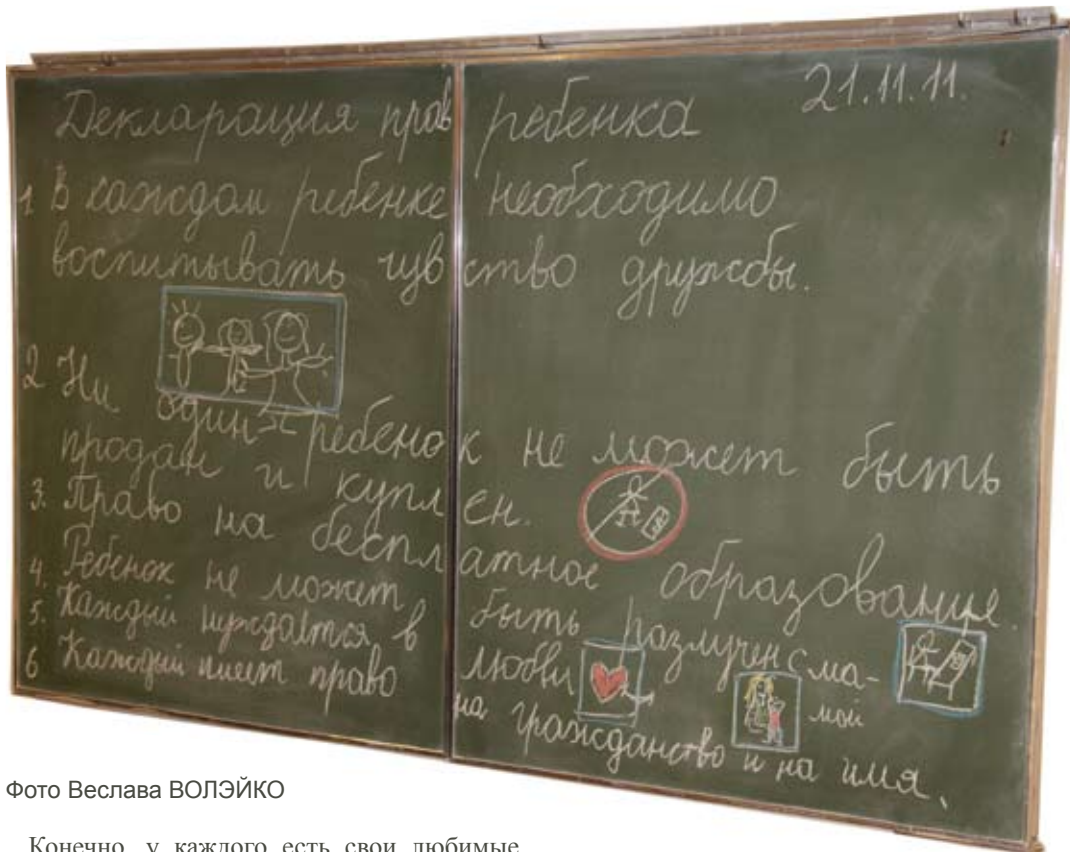 21.11.11.
Декларация прав ребенка
1 В каждом ребенке необходимо
воспитывать чувство дружбы.
2 Ни один ребенок не может быть
продан и куплен.
3. Право на бесплатное образование.
4. Ребенок не может быть разлучен с ма-
мой
5. Каждый нуждается в любви
6 Каждый имеет право на гражданство и на имя.
Фото Веслава ВОЛЭЙКО
Конечно, у каждого есть свои любимые